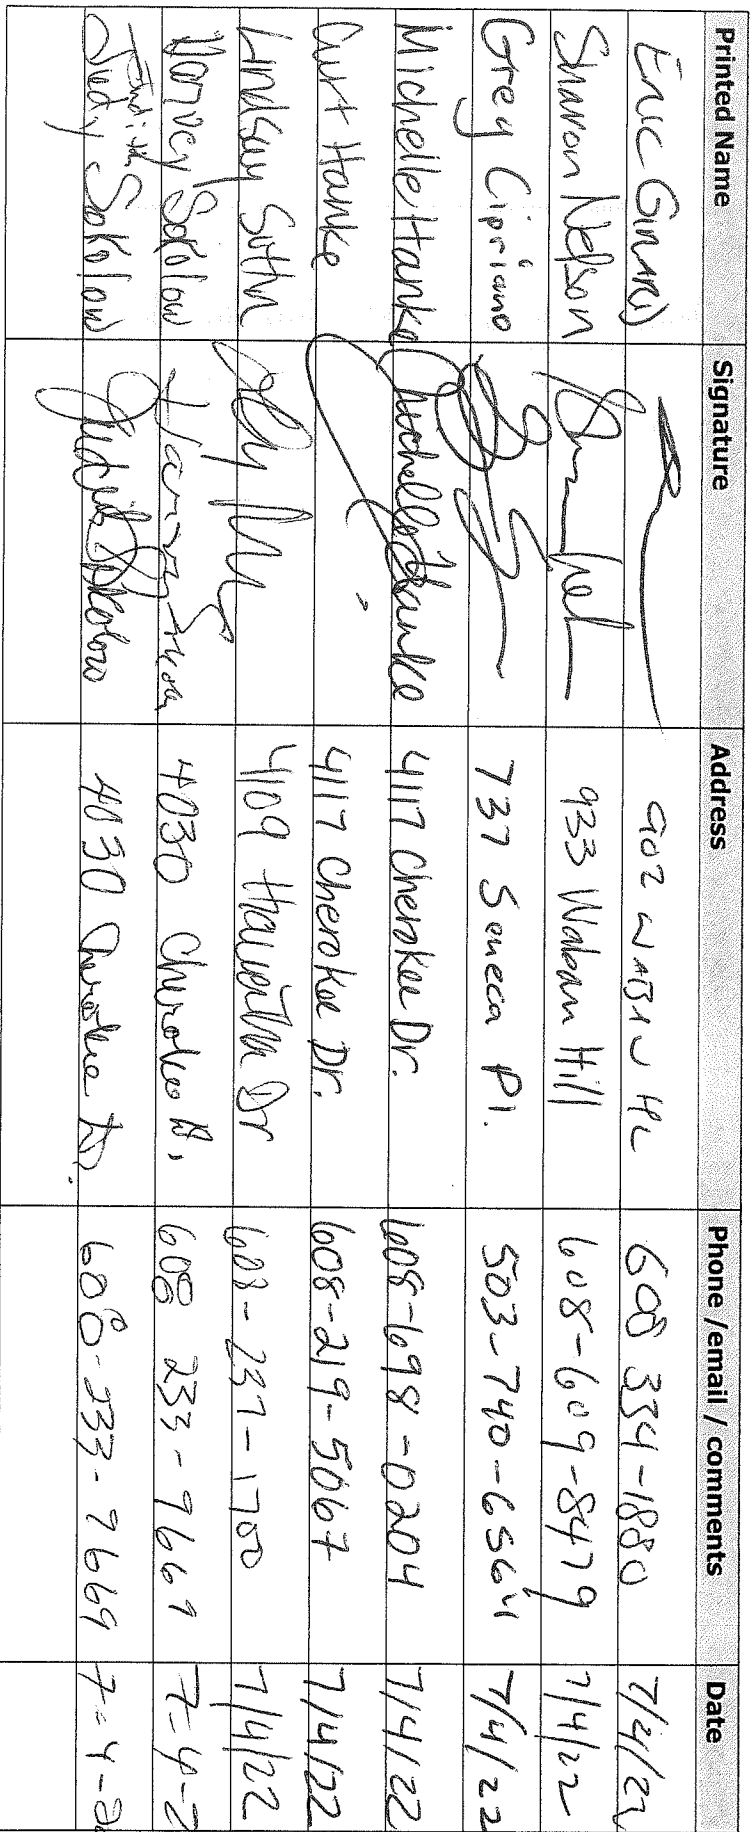 Printed Name Signature Address Phone / email / comments Date
Eric 902 608 334-1880 7/4/22
Sharon Nelson 933 Waban Hill 608-609-8479 7/4/22
Greg Cipriano 737 Seneca Pl. 503-740-6564 7/4/22
Michelle Hanke Michelle Hanke 4117 Cherokee Dr. 608-698-0204 7/4/22
Curt Hanke 4117 Cherokee Dr. 608-219-5067 7/4/22
Lindsay 4109 Dr 608-237-1700 7/4/22
Harvey Sokolow 4030 Cherokee Dr. 608 233-9669 7-4-2
Judith
Judy Sokolow Judith Sokolow 4030 Cherokee Dr. 608-233-9669 7-4-2